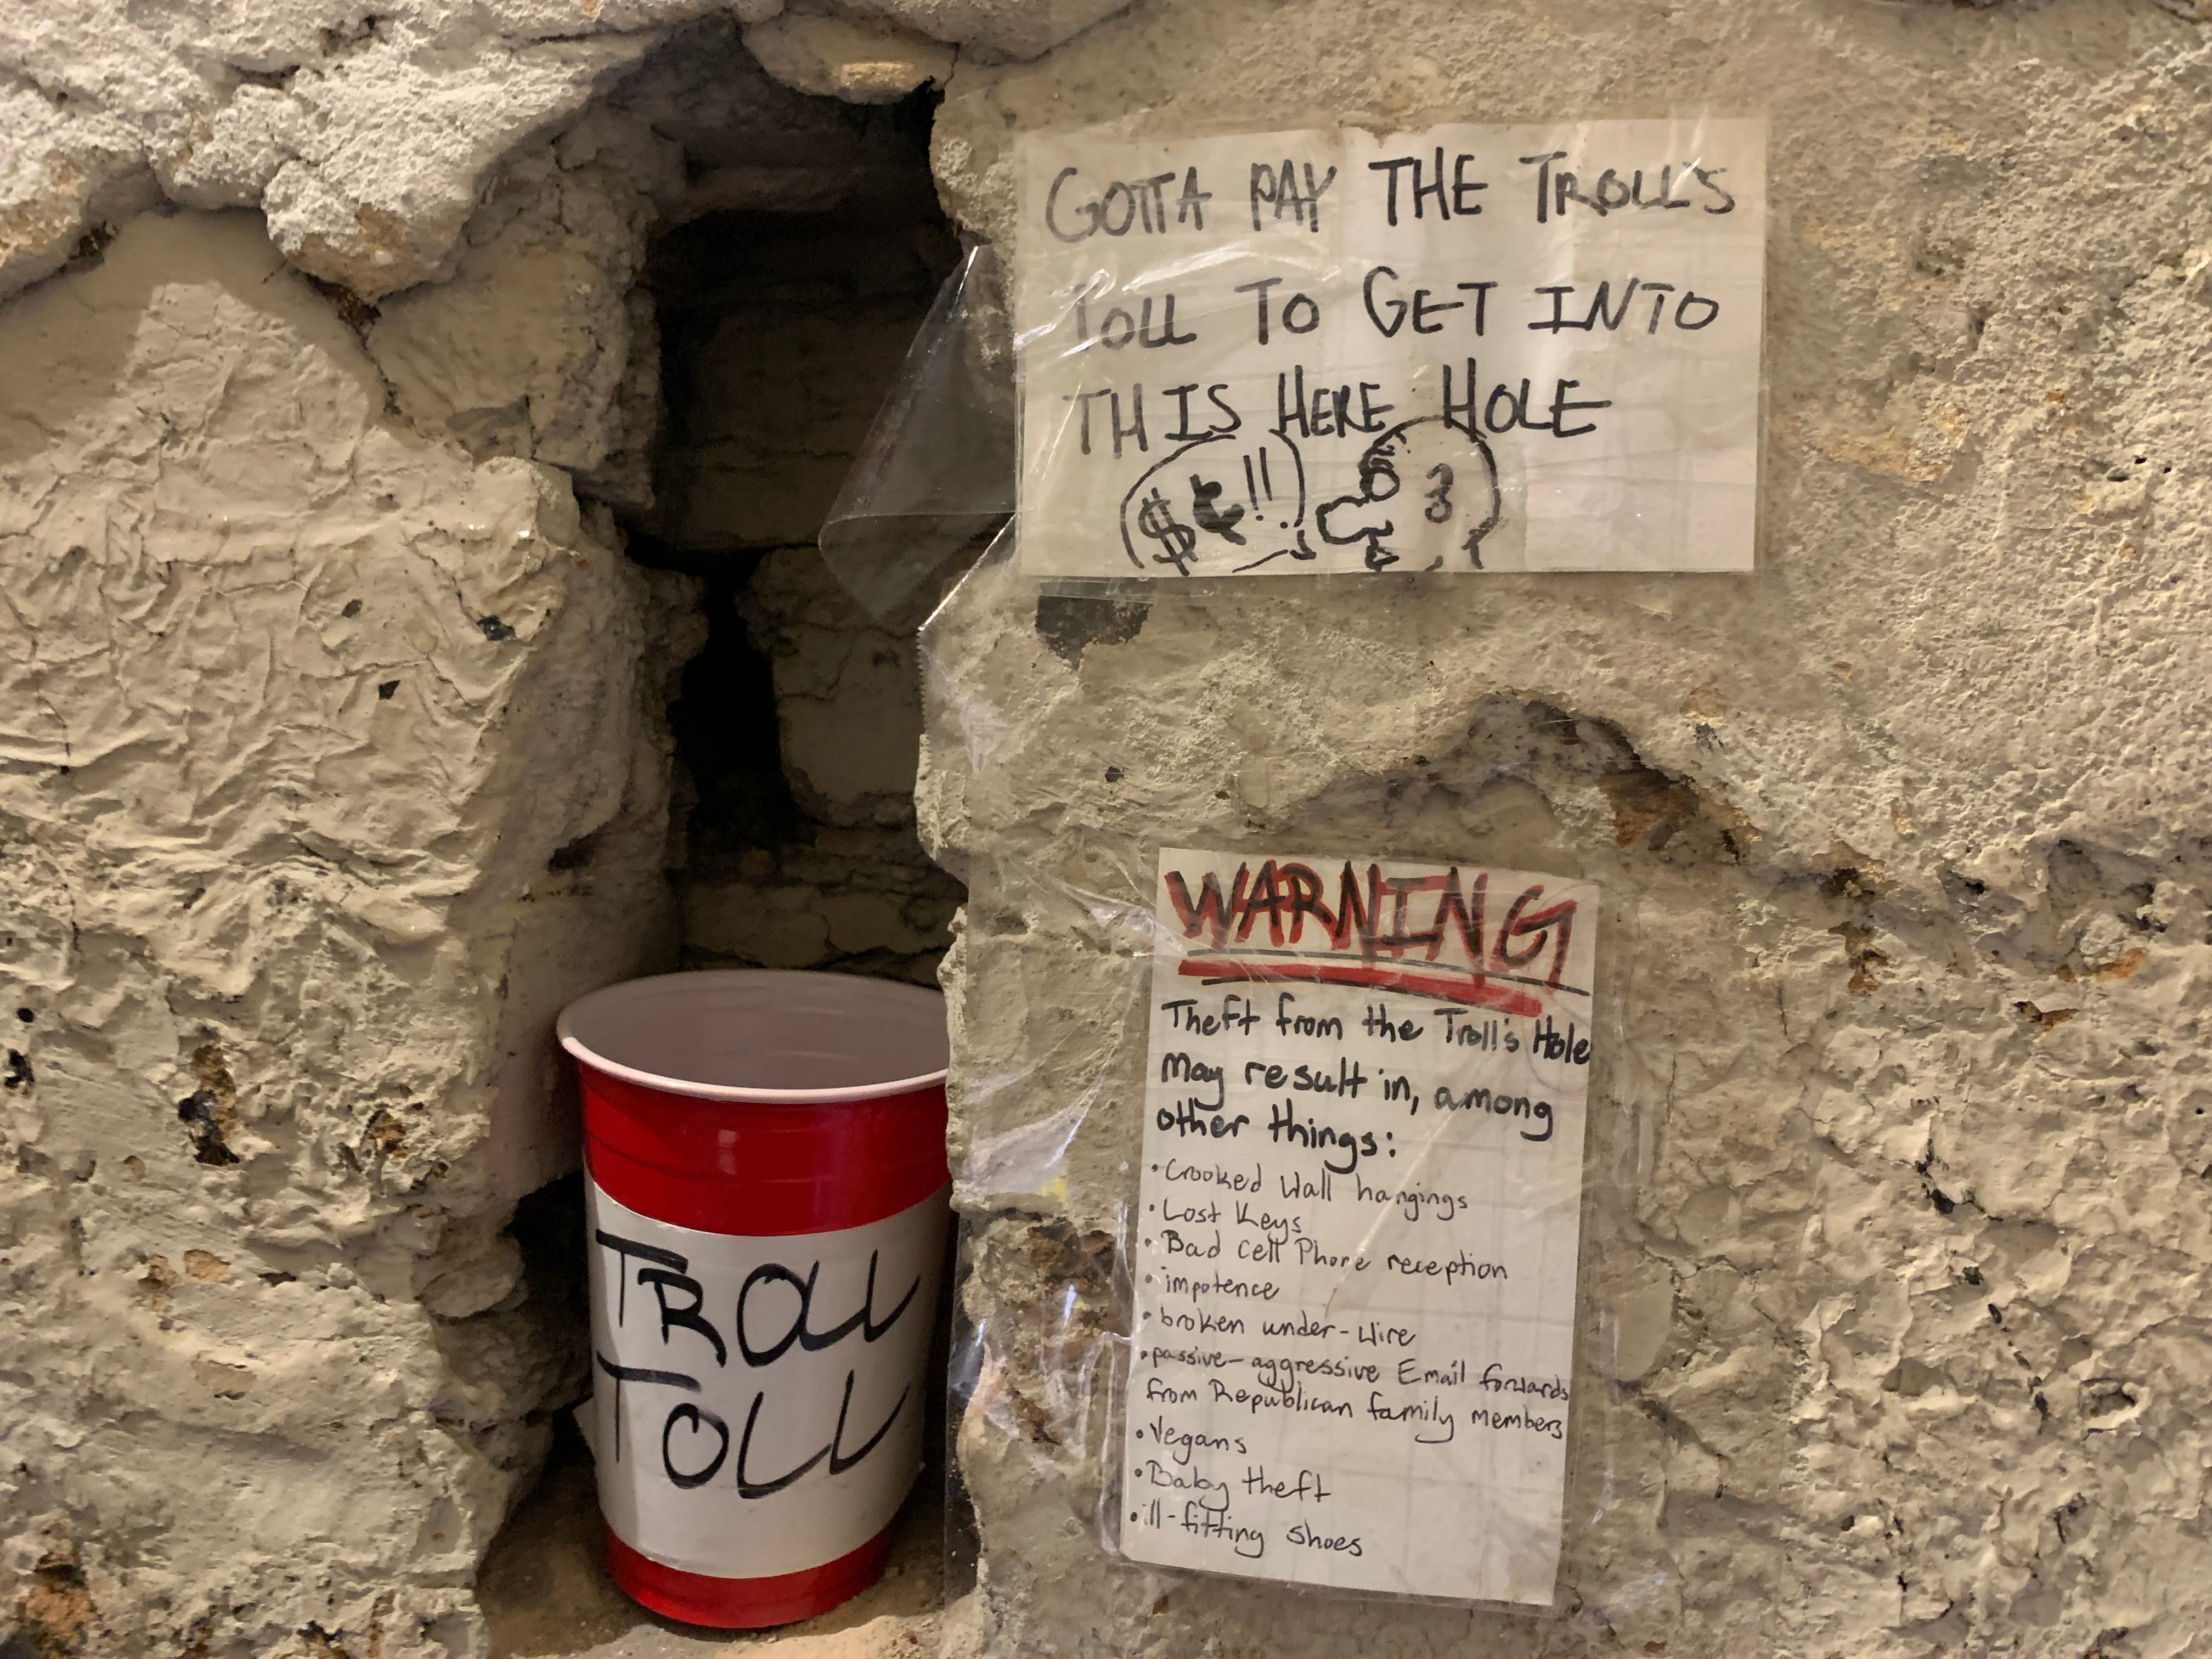 GOTTA PAY THE TROLL'S
TOLL TO GET INTO
THIS HERE HOLE
$¢!!
TROLL
TOLL
WARNING
Theft from the Troll's Hole
May result in, among
other things:
• Crooked Wall hangings
• Lost Keys
• Bad Cell Phone reception
• impotence
• broken under-wire
• passive-aggressive Email forwards
from Republican family members
• Vegans
• Baby theft
• ill-fitting shoes